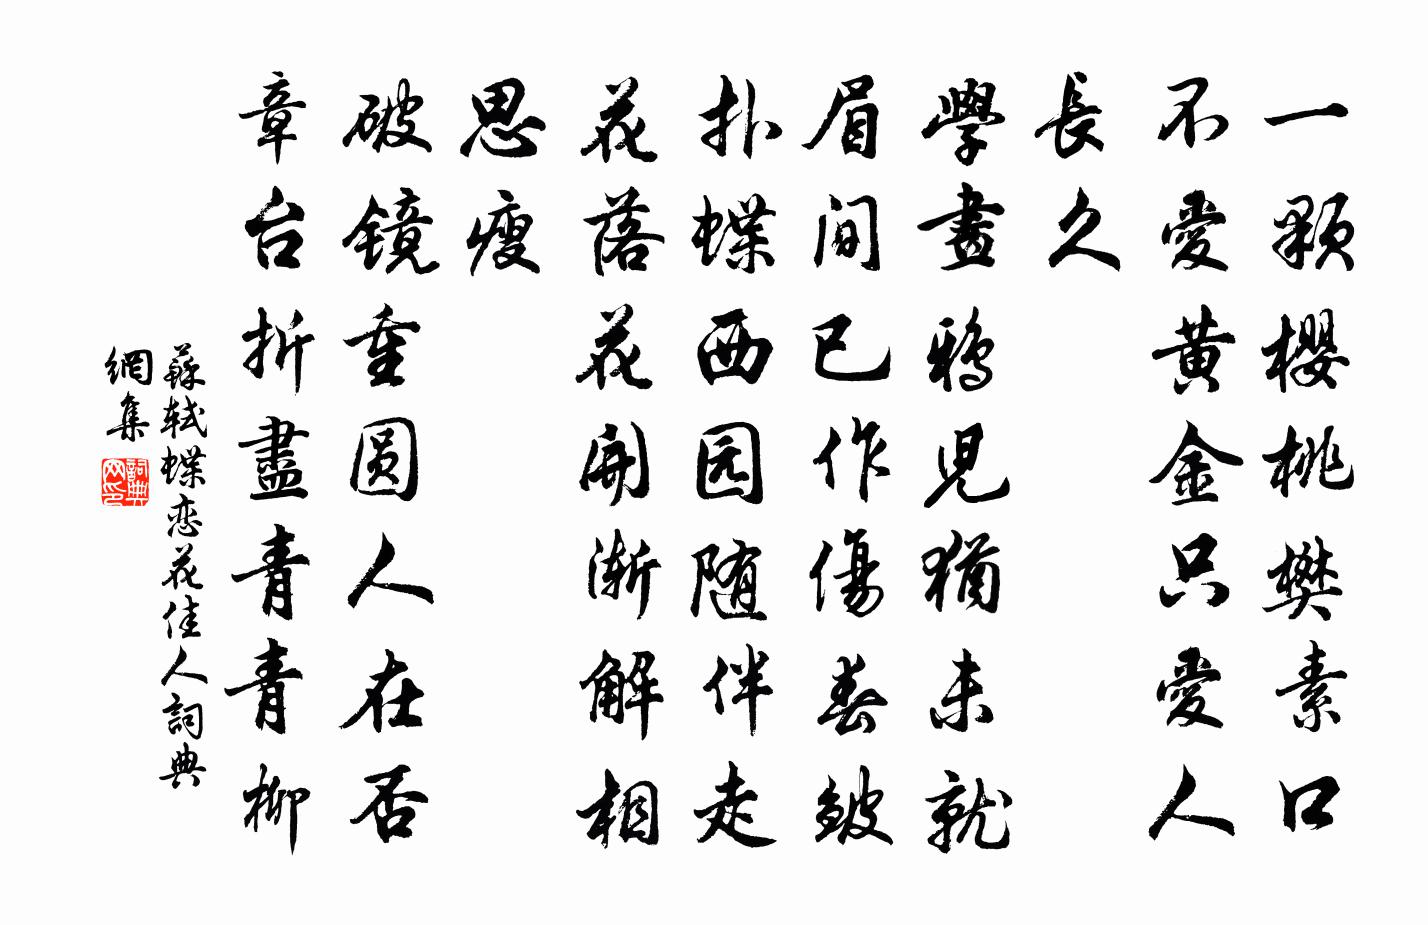 一颗櫻桃樊素口
不愛黄金只愛人
長久
學畫鴉兒猶未就
眉间已作傷春皺
扑蝶西园随伴走
花落花開渐解相
思瘦
破镜重圆人在否
章台折盡青青柳
蘇轼蝶恋花佳人詞典
網集
詞典
网印